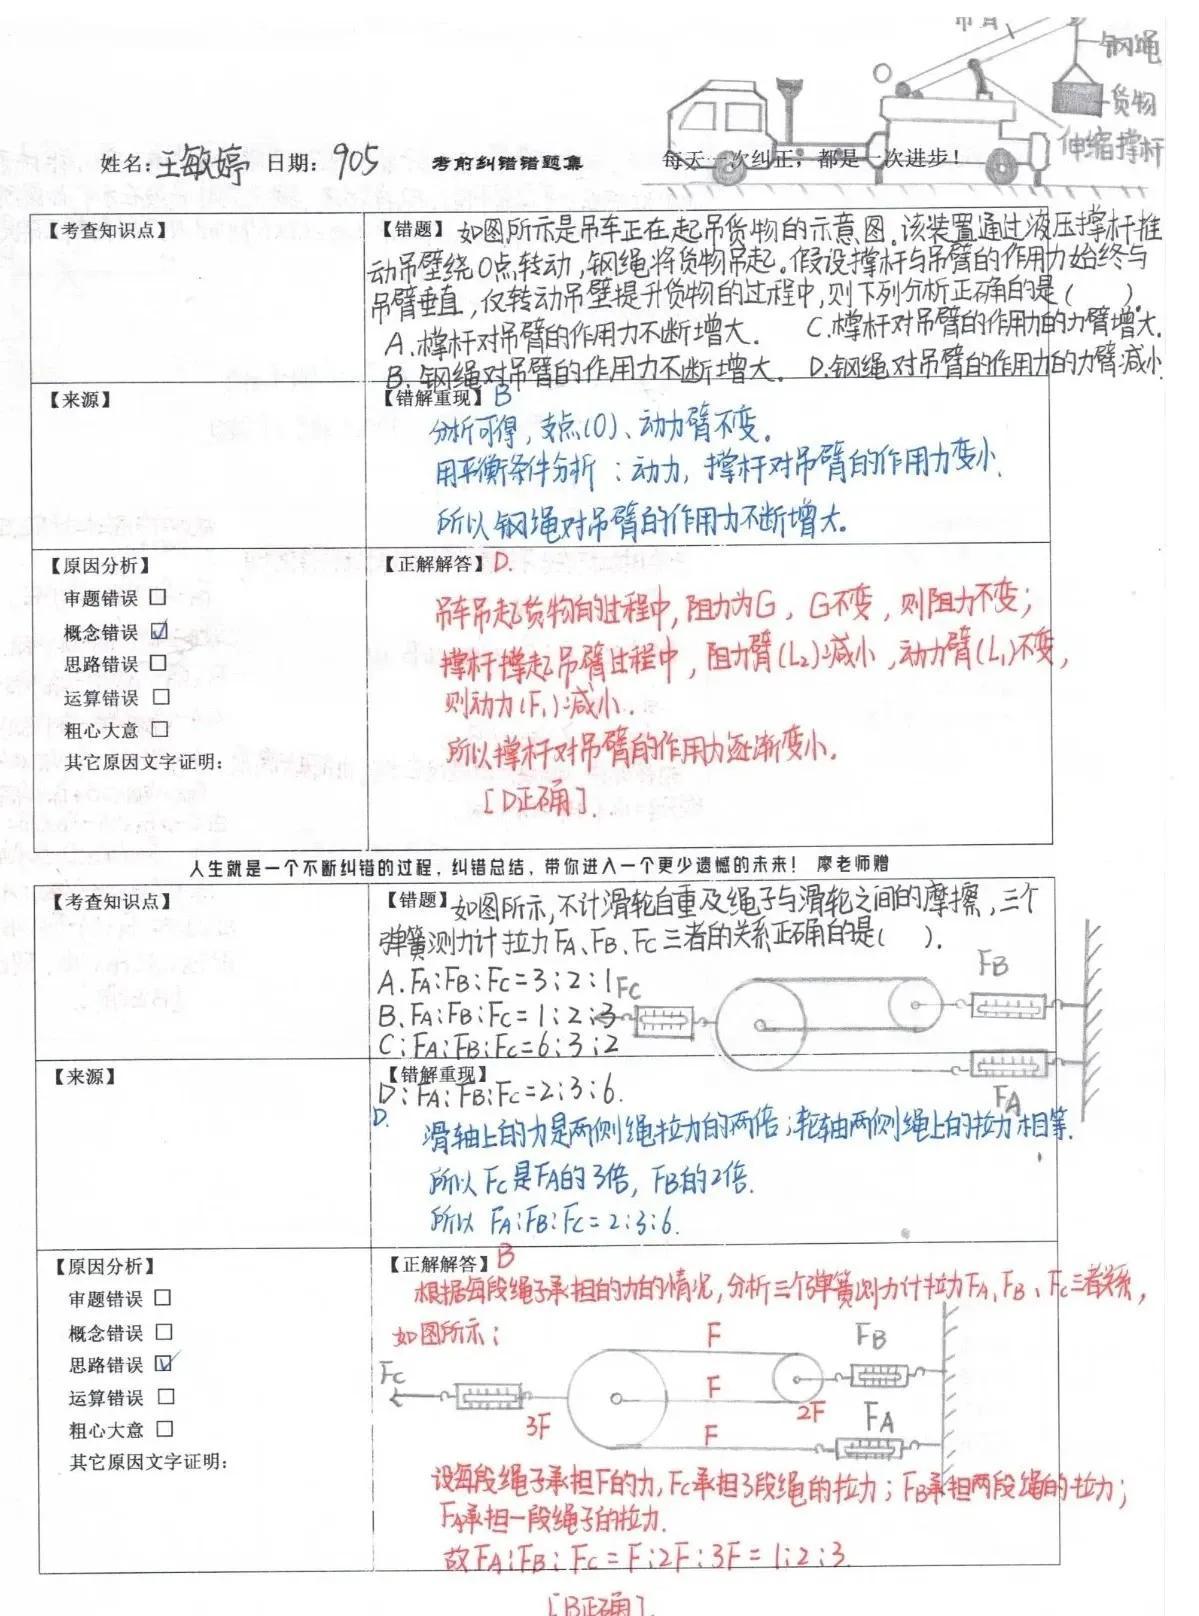 吊臂
钢绳
货物
伸缩撑杆
O
姓名：王敏婷 日期：905 考前纠错错题集 每天一次纠正，都是一次进步！
【考查知识点】
【错题】如图所示是吊车正在起吊货物的示意图。该装置通过液压撑杆推
动吊壁绕O点转动，钢绳将货物吊起。假设撑杆与吊臂的作用力始终与
吊臂垂直，仅转动吊壁提升货物的过程中，则下列分析正确的是（ ）。
A.撑杆对吊臂的作用力不断增大. C.撑杆对吊臂的作用力的力臂增大.
B.钢绳对吊臂的作用力不断增大. D.钢绳对吊臂的作用力的力臂减小.
【来源】
【错解重现】B
分析可得，支点(O)、动力臂不变。
用平衡条件分析：动力，撑杆对吊臂的作用力变小.
所以钢绳对吊臂的作用力不断增大。
【原因分析】
审题错误 □
概念错误 ☑
思路错误 □
运算错误 □
粗心大意 □
其它原因文字证明：
【正解解答】D.
吊车吊起货物的过程中，阻力为G，G不变，则阻力不变；
撑杆撑起吊臂过程中，阻力臂(L₂)减小，动力臂(L₁)不变，
则动力(F₁)减小.
所以撑杆对吊臂的作用力逐渐变小.
[D正确].
人生就是一个不断纠错的过程，纠错总结，带你进入一个更少遗憾的未来！ 廖老师赠
【考查知识点】
【错题】如图所示，不计滑轮自重及绳子与滑轮之间的摩擦，三个
弹簧测力计拉力FA、FB、FC三者的关系正确的是( ).
A.FA:FB:FC=3:2:1
B.FA:FB:FC=1:2:3
C:FA:FB:FC=6:3:2
FC
FB
FA
【来源】
【错解重现】
D:FA:FB:FC=2:3:6.
D.
滑轴上的力是两侧绳拉力的两倍；轮轴两侧绳上的拉力相等.
所以FC是FA的3倍，FB的2倍.
所以 FA:FB:FC=2:3:6.
【原因分析】
审题错误 □
概念错误 □
思路错误 ☑
运算错误 □
粗心大意 □
其它原因文字证明：
【正解解答】B
根据每段绳子承担的力的情况，分析三个弹簧测力计拉力FA、FB、FC三者关系，
如图所示：
F
FB
FC
F
3F
2F
FA
F
设每段绳子承担F的力，FC承担3段绳的拉力；FB承担两段绳的拉力；
FA承担一段绳子的拉力.
故FA:FB:FC=F:2F:3F=1:2:3.
[B正确].